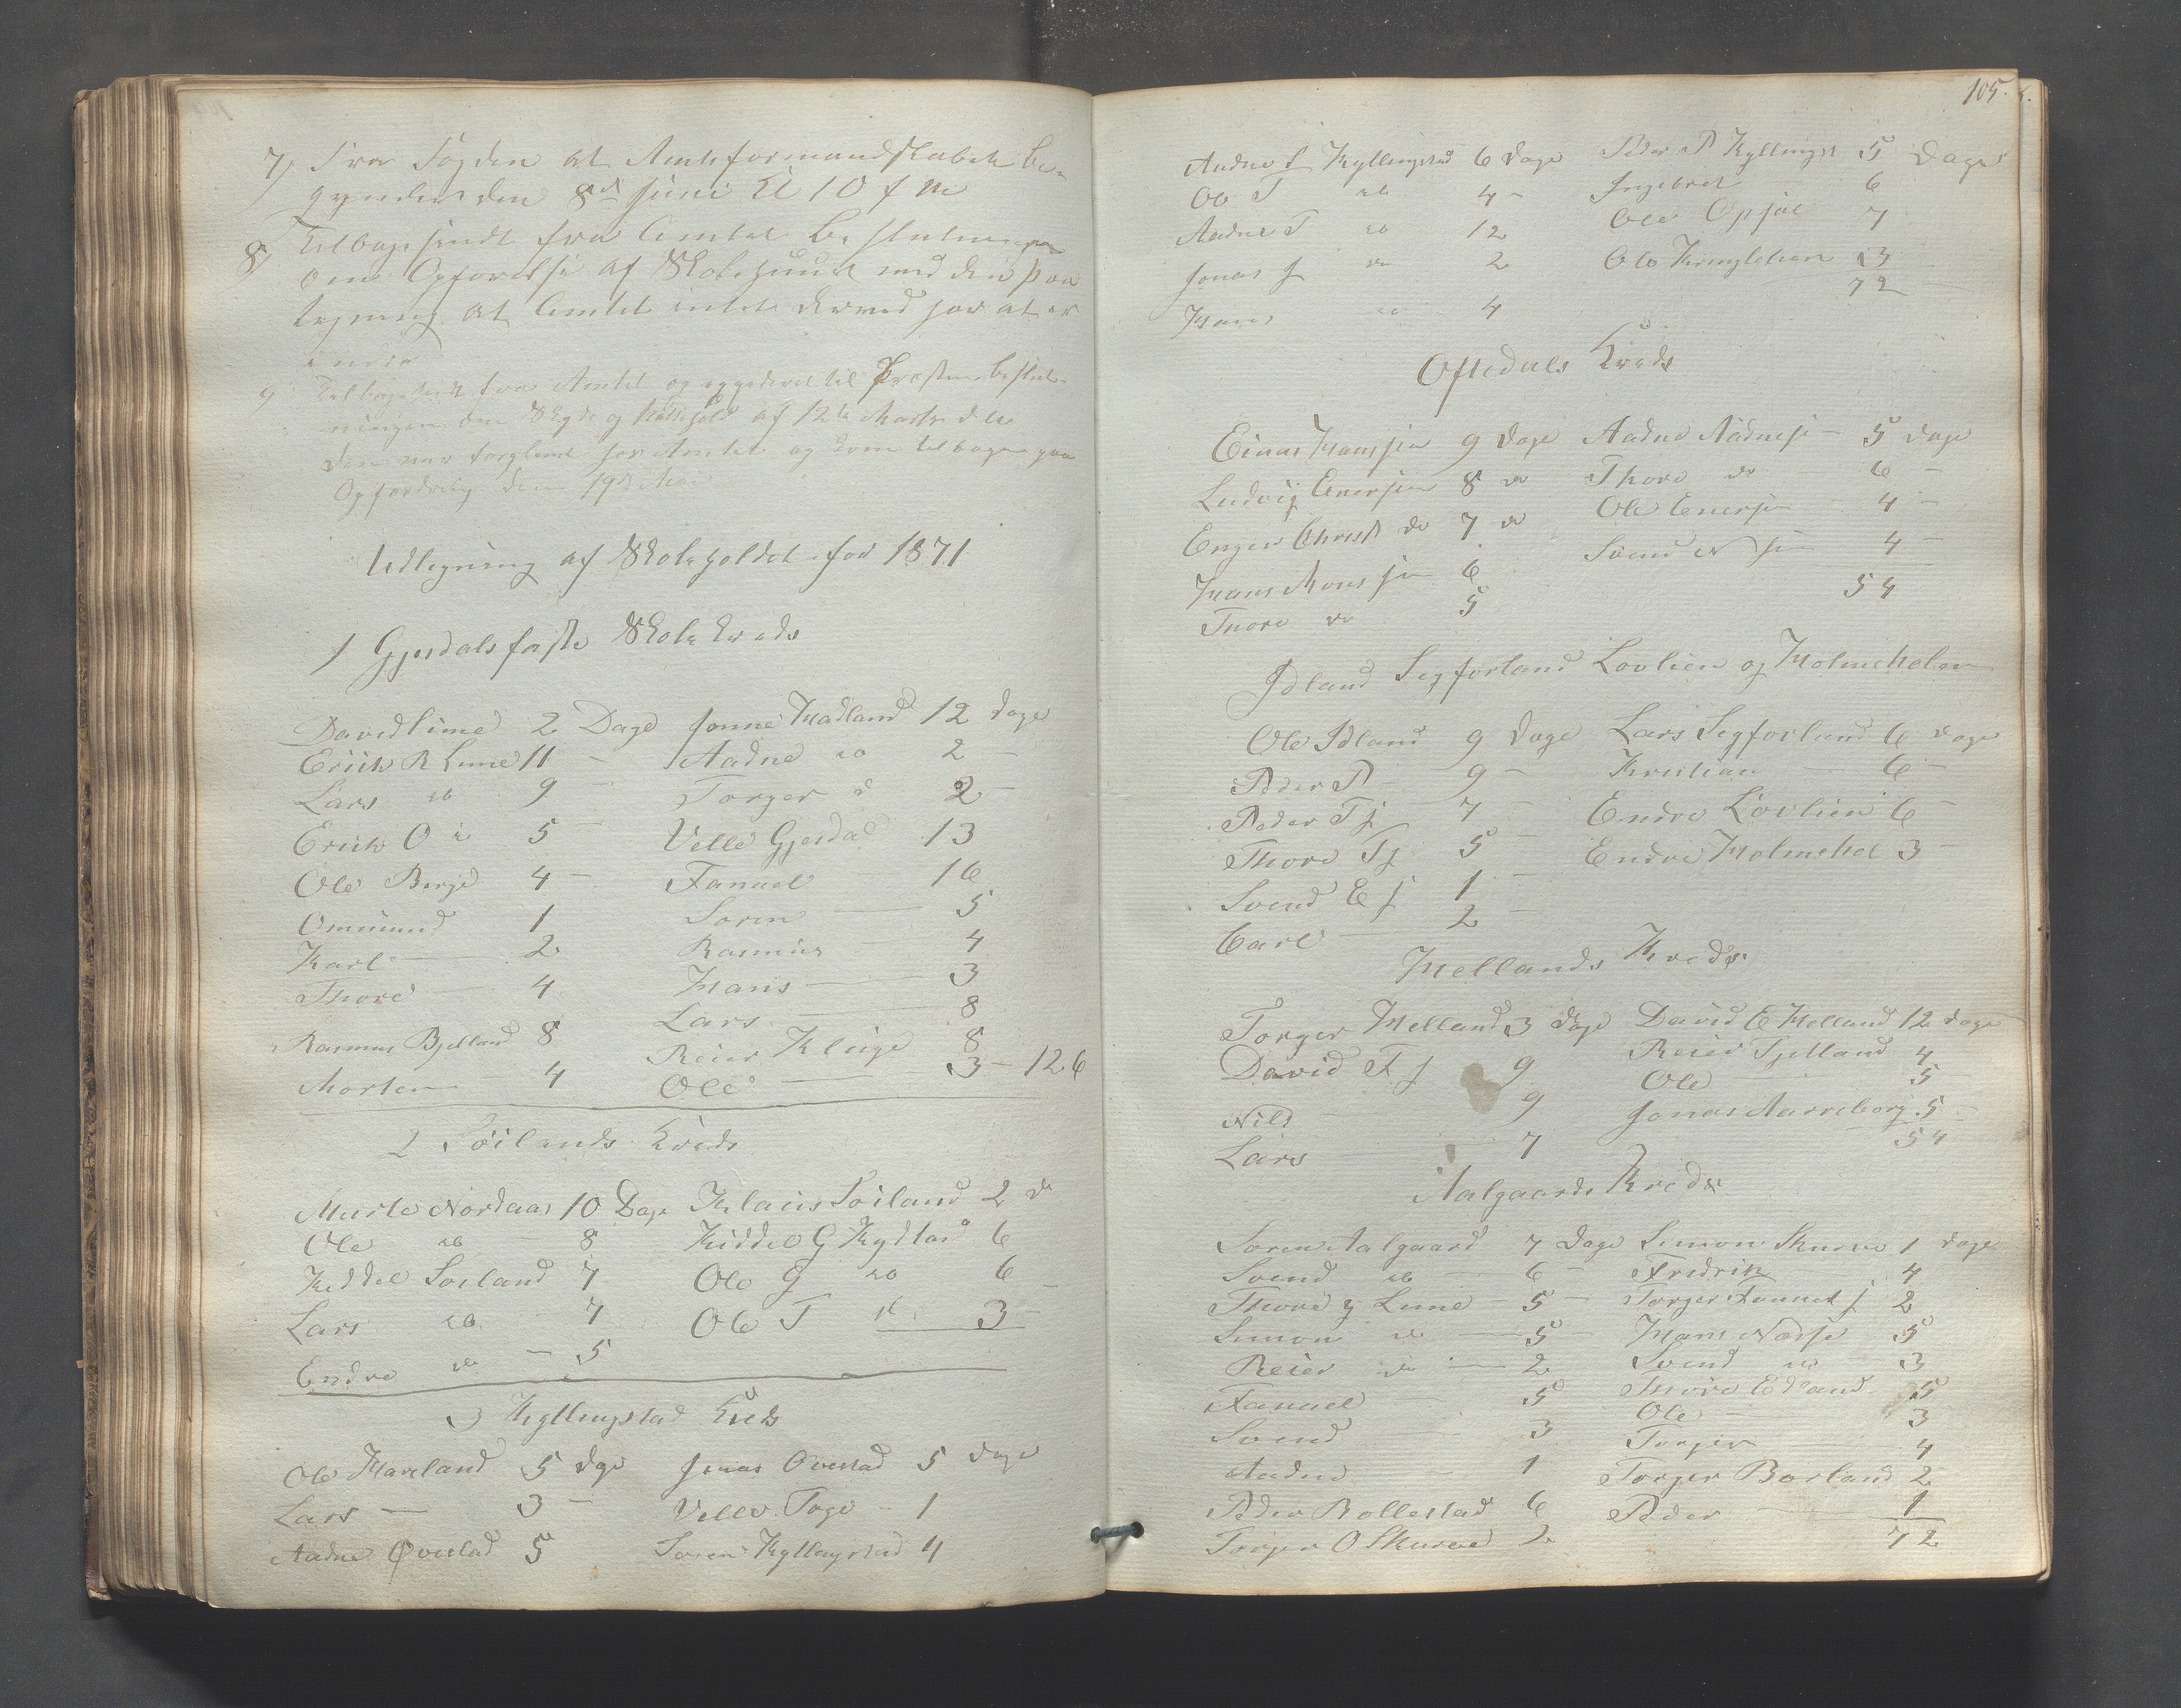 7) Fra Fogden at Amtsformandskabet be-
gyndes den 8de Juni Kl 10 f M
8) Tilbagesendt fra Amtet Beslutningen
om Opførelse af Skolehuus med den Paa
tegning at Amtet intet derved har at er
indre
9 Tilbagesendt fra Amtet og til Præsten Beslut-
ningen om Skyds og af 12te Marts
den var forglemt hos Amtet og kom tilbage paa
Opfordring den 19de Mai
Udligning af Skoleholdet for 1871
1 Gjesdals faste Skolekreds
David Lime 2 Dage Jonne Madland 12 dage
Erich R Lime 11 – Aadne do 2 –
Lars do 9 – Torger d 2 –
Erich O do 5 – Velle Gjesdal 13
Ole Berge 4 – Fanuel 16
Ommund 1 Søren — 5
Karl — 2 Rasmus — 4
Thore — 4 Hans — 3
Lars — 8
Rasmus Bjelland 8 Reier Kluge 8
Morten — 4 Ole — 3 – 126
2 Søilands Kreds
Nordaas 10 Dage Klaus Søiland 2 d
Ole do – 8 Kiddel G Kydlas 6
Kiddel Soiland 7 Ole G do 6 –
Lars do 7 Ole T d. 3 –
Endre do – 5
3 Kyllingstad Kreds
Ole Haveland 5 dge Jonas Ovestad 5 dage
Lars — 3 – Velle Toge – 1
Aadne Øvestad 5 Soren Kyllingstad 4
105.
Aadne S Kyllingstad 6 dage Peder P Kyllingst 5 dage
Ole T do 4 – Ingebret 6
Aadne T do 12 Ole Opsal 7
Jonas J do 2 Ole Kringlelien 3
Hans do 4 72 —
Oftedals Kreds
Einar Hanssen 9 Dage Aadne Aadnes – 5 dage
Ludvig Enersen 8 do Thore do 6 –
Enger Christ do 7 do Ole Enersen 4 –
Hans Monssen 6 Svend N sen 4 –
Thore do 5 54
Idland Segforland Løvlien og Holmehelen
Ole Idland 9 Dage Lars Segforland 6 dage
Peder P 9 – Kristian — 6 –
Peder T j 7 – Endre Løvlien 6 –
Thore T j 5 – Endre Holmehel 3 –
Svend E j 1 –
Carl — 2 –
Mellands Kreds
Torger Melland 3 dage David E Melland 12 dage
David F j 9 Reier Fjelland 4
Nils 9 Ole — 5
Lars — 7 Jonas Aarreberg 5
54
Aalgaards Kreds
Soren Aalgaard 7 Dage Simon Skurve 1 dage
Svend do — 6 – Fredrik 4
Thore J Lime – 5 – Torger Fanuel j 2
Simon do — 5 – Hans Næse 5
Reier do — 2 Svend do 3
Fanuel — 5 Thore Edland 5
Svend — 3 Ole — 3
Aadne – 1 Torger — 4
Peder Bollestad 6 Torger Borland 2
Torger O Skurve 2 Peder — 1
72